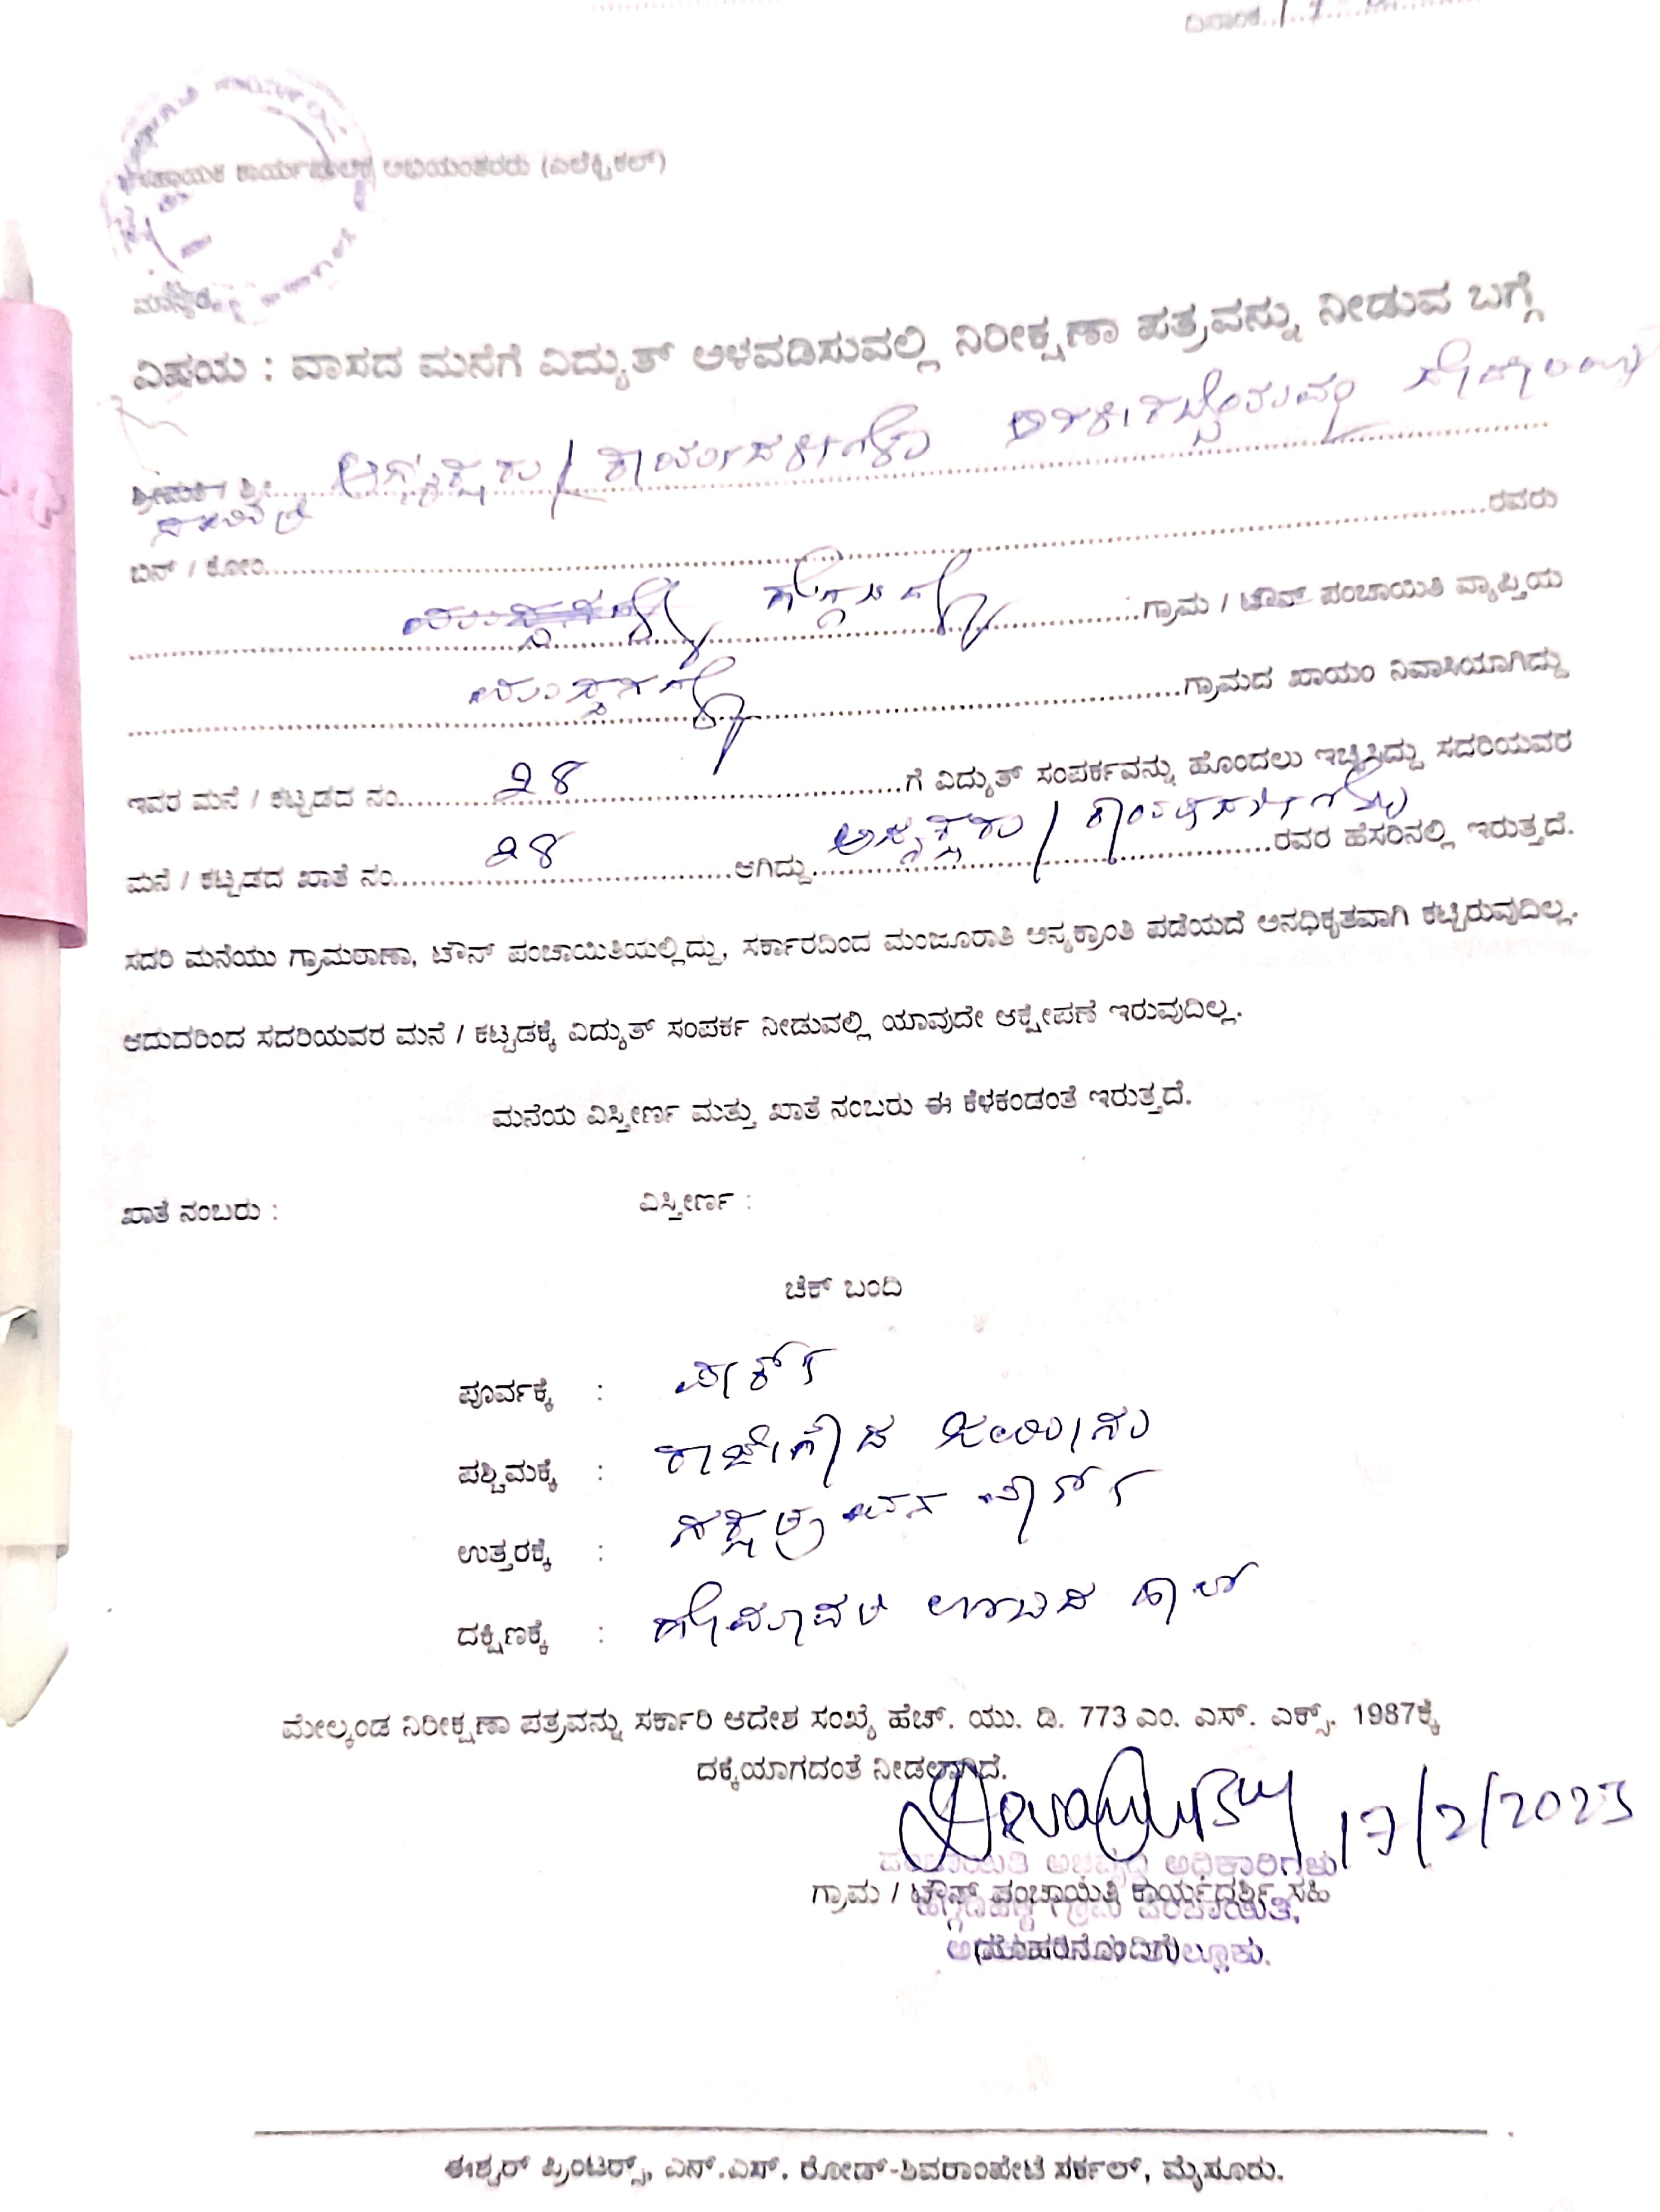 ದಿನಾಂಕ
ಸಹಾಯಕ ಕಾರ್ಯಪಾಲಕ ಅಭಿಯಂತರರು (ಎಲೆಕ್ಟ್ರಿಕಲ್)
ಮಾನ್ಯರೆ,
ವಿಷಯ : ವಾಸದ ಮನೆಗೆ ವಿದ್ಯುತ್ ಅಳವಡಿಸುವಲ್ಲಿ ನಿರೀಕ್ಷಣಾ ಪತ್ರವನ್ನು ನೀಡುವ ಬಗ್ಗೆ
ಶ್ರೀಮತಿ / ಶ್ರೀ ಅಧ್ಯಕ್ಷರು / ಕಾರ್ಯದರ್ಶಿಗಳು
ಬಿನ್ / ಕೋಂ ರವರು
ಗ್ರಾಮ / ಟೌನ್ ಪಂಚಾಯಿತಿ ವ್ಯಾಪ್ತಿಯ
ಗ್ರಾಮದ ಖಾಯಂ ನಿವಾಸಿಯಾಗಿದ್ದು
ಇವರ ಮನೆ / ಕಟ್ಟಡದ ನಂ 28 ಗೆ ವಿದ್ಯುತ್ ಸಂಪರ್ಕವನ್ನು ಹೊಂದಲು ಇಚ್ಛಿಸಿದ್ದು ಸದರಿಯವರ
ಮನೆ / ಕಟ್ಟಡದ ಖಾತೆ ನಂ 28 ಆಗಿದ್ದು ಅಧ್ಯಕ್ಷರು / ಕಾರ್ಯದರ್ಶಿಗಳು ರವರ ಹೆಸರಿನಲ್ಲಿ ಇರುತ್ತದೆ.
ಸದರಿ ಮನೆಯು ಗ್ರಾಮಠಾಣಾ, ಟೌನ್ ಪಂಚಾಯಿತಿಯಲ್ಲಿದ್ದು, ಸರ್ಕಾರದಿಂದ ಮಂಜೂರಾತಿ ಅನ್ಯಕ್ರಾಂತಿ ಪಡೆಯದೆ ಅನಧಿಕೃತವಾಗಿ ಕಟ್ಟಿರುವುದಿಲ್ಲ.
ಆದುದರಿಂದ ಸದರಿಯವರ ಮನೆ / ಕಟ್ಟಡಕ್ಕೆ ವಿದ್ಯುತ್ ಸಂಪರ್ಕ ನೀಡುವಲ್ಲಿ ಯಾವುದೇ ಆಕ್ಷೇಪಣೆ ಇರುವುದಿಲ್ಲ.
ಮನೆಯ ವಿಸ್ತೀರ್ಣ ಮತ್ತು ಖಾತೆ ನಂಬರು ಈ ಕೆಳಕಂಡಂತೆ ಇರುತ್ತದೆ.
ಖಾತೆ ನಂಬರು : ವಿಸ್ತೀರ್ಣ :
ಚೆಕ್ ಬಂದಿ
ಪೂರ್ವಕ್ಕೆ : ಪಾರ್ಕ್
ಪಶ್ಚಿಮಕ್ಕೆ : ರಾಜೇಗೌಡ ಜಮೀನು
ಉತ್ತರಕ್ಕೆ : ನಕ್ಷತ್ರ ವನ ಪಾರ್ಕ್
ದಕ್ಷಿಣಕ್ಕೆ :
ಮೇಲ್ಕಂಡ ನಿರೀಕ್ಷಣಾ ಪತ್ರವನ್ನು ಸರ್ಕಾರಿ ಆದೇಶ ಸಂಖ್ಯೆ ಹೆಚ್. ಯು. ಡಿ. 773 ಎಂ. ಎಸ್. ಎಕ್ಸ್. 1987ಕ್ಕೆ
ದಕ್ಕೆಯಾಗದಂತೆ ನೀಡಲಾಗಿದೆ.
17/2/2023
ಪಂಚಾಯಿತಿ ಅಭಿವೃದ್ಧಿ ಅಧಿಕಾರಿಗಳು
ಗ್ರಾಮ / ಟೌನ್ ಪಂಚಾಯಿತಿ ಕಾರ್ಯದರ್ಶಿ ಸಹಿ
ಗ್ರಾಮ ಪಂಚಾಯಿತಿ,
(ಮೊಹರಿನೊಂದಿಗೆ)
ಈಶ್ವರ್ ಪ್ರಿಂಟರ್ಸ್, ಎನ್.ಎಸ್. ರೋಡ್-ಶಿವರಾಂಪೇಟೆ ಸರ್ಕಲ್, ಮೈಸೂರು.